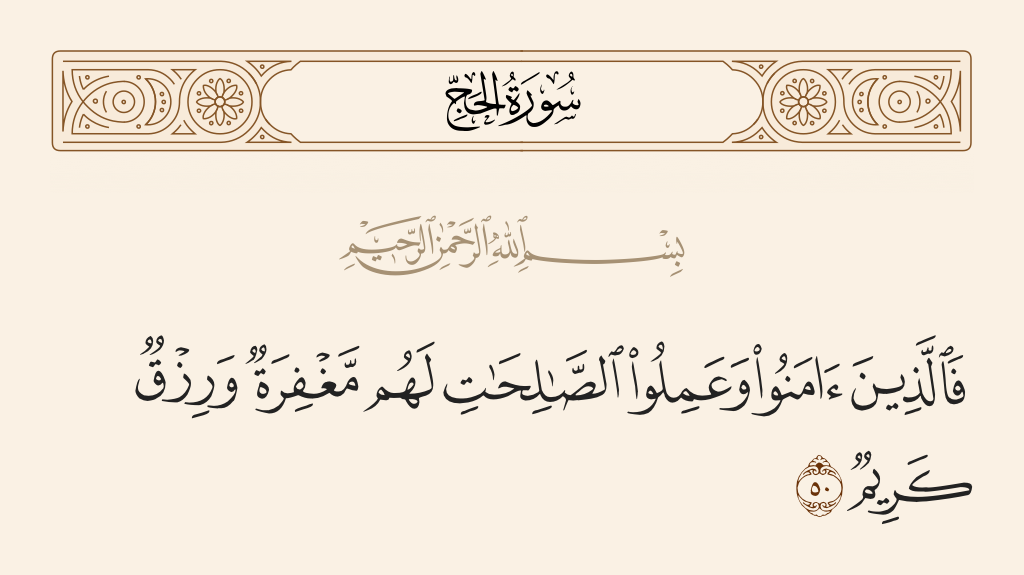 سُورَةُ الحَجِّ
بِسْمِ ٱللَّهِ ٱلرَّحْمَٰنِ ٱلرَّحِيمِ
فَٱلَّذِينَ ءَامَنُوا۟ وَعَمِلُوا۟ ٱلصَّـٰلِحَـٰتِ لَهُم مَّغْفِرَةٌ وَرِزْقٌ
كَرِيمٌ ٥٠